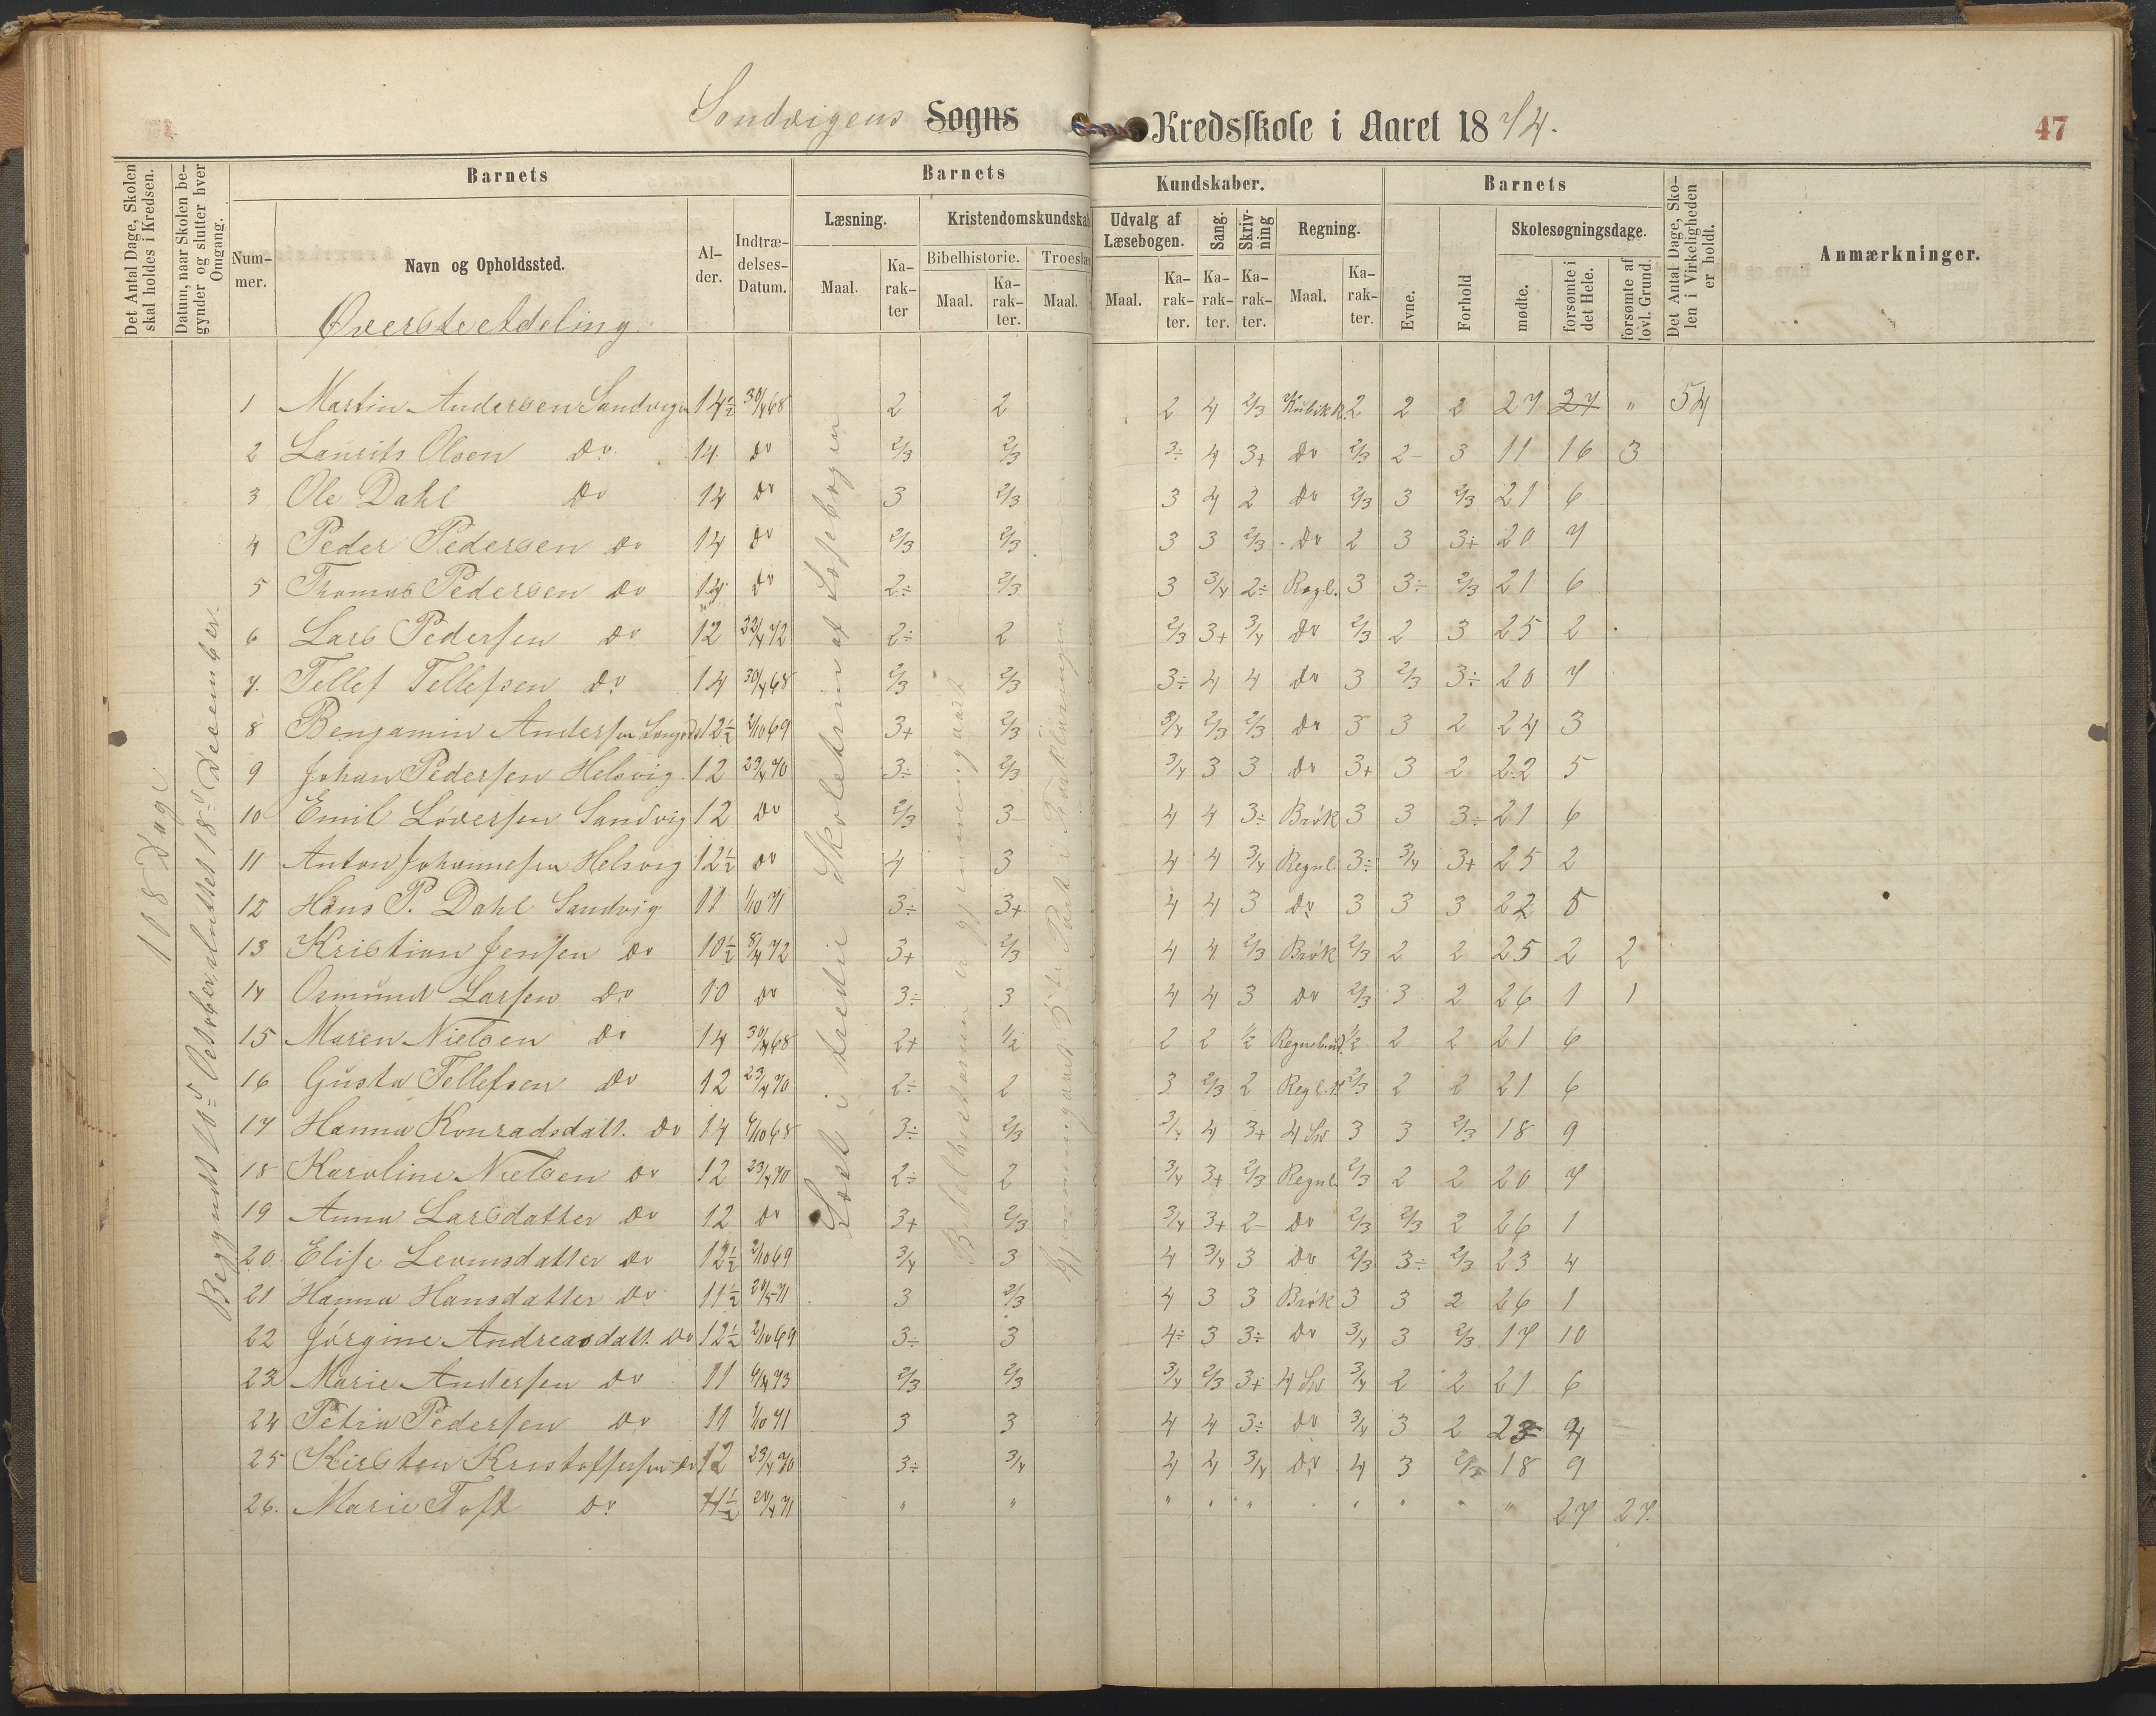 Sandvigens Sogns Kredsskole i Aaret 1874.
47
Det Antal Dage, Skolen skal holdes i Kredsen.
Datum, naar Skolen be- gynder og slutter hver Omgang.
Barnets
Num- mer.
Navn og Opholdssted.
Al- der.
Indtræ- delses- Datum.
Barnets
Kundskaber.
Læsning.
Kristendomskundskab
Maal.
Ka- rak- ter
Bibelhistorie.
Maal.
Ka- rak- ter.
Troeslær
Maal.
Udvalg af Læsebogen.
Maal.
Ka- rak- ter.
Sang.
Ka- rak- ter.
Skriv- ning
Ka- rak- ter.
Regning.
Maal.
Ka- rak- ter.
Barnets
Evne.
Forhold
Skolesøgningsdage.
mødte.
forsømte i det Hele.
forsømte af lovl. Grund.
Det Antal Dage, Sko- len i Virkeligheden er holdt.
Anmærkninger.
Øverste Afdeling.
108 Dage
Begyndt 10d October sluttet 18d December.
Læst i tredie Skoletrin af Læsebogen
Bibelhistorien er gjennemgaaet
Gjennemgaaet 5te Part i Forklaringen
1 Martin Andersen Sandvigen 14½ 30/4 68 2 2 2 4 2/3 Kubikr. 2 2 2 27 27 " 54
2 Laurits Olsen do 14 do 2/3 2/3 3÷ 4 3+ do 2/3 2- 3 11 16 3
3 Ole Dahl do 14 do 3 2/3 3 4 2 do 2/3 3 2/3 21 6
4 Peder Pedersen do 14 do 2/3 2/3 3 3 2/3 do 2 3 3+ 20 7
5 Thomas Pedersen do 14 do 2÷ 2/3 3 3/4 2÷ Regl. 3 3÷ 2/3 21 6
6 Lars Pedersen do 12 /4 72 2÷ 2 2/3 3+ 3/4 do 2/3 2 3 25 2
7. Tellef Tellefsen do 14 30/4 68 2/3 2/3 3÷ 4 4 do 3 2/3 3÷ 20 7
8 Benjamin Andersen 12½ 2/10 69 3+ 2/3 3/4 2/3 2/3 do 3 3 2 24 3
9 Johan Pedersen Helsvig 12 23/4 70 3÷ 2/3 3/4 3 3 do 3+ 3 2 22 5
10 Emil Løversen Sandvig 12 do 2/3 3- 4 4 3÷ Brøk 3 3 3÷ 21 6
11 Anton Johannesen Helsvig 12½ do 4 3 4 4 3/4 Regul. 3÷ 3/4 3+ 25 2
12 Hans P. Dahl Sandvig 11 1/10 71 3÷ 3+ 4 4 3 do 3 3 3 22 5
13 Kristian Jensen do 10½ 8/4 72 3+ 2/3 4 4 2/3 Brøk 2/3 2 2 25 2 2
14 Osmund Larsen do 10 do 3÷ 3 4 4 3 do 2/3 3 2 26 1 1
15 Maren Nielsen do 14 30/4 68 2+ 1/2 2 2 1/2 1/2 2 2 21 6
16 Gusta Tellefsen do 12 23/4 70 2÷ 2 3 2/3 2 Regl. 2/3 2 2 21 6
17 Hanna Konradsdatt. do 14 6/10 68 3÷ 2/3 3/4 4 3+ 4 Sp 3 3 2/3 18 9
18 Karoline Nielsen do 12 23/4 70 2÷ 2 3/4 3+ 2/3 Regul. 2/3 2 2 20 7
19 Anna Larsdatter do 12 do 3+ 2/3 3/4 3+ 2- do 2/3 2/3 2 26 1
20. Elise Levinsdatter do 12½ 2/10 69 3/4 3 4 3/4 3 do 2/3 3÷ 2/3 23 4
21 Hanna Hansdatter do 11½ 20/5 71 3 2/3 4 3 3 Brøk 3 3 2 26 1
22 Jørgine Andreasdatt. do 12½ 2/10 69 3÷ 3 4÷ 3 3÷ do 3/4 3 2/3 17 10
23 Marie Andersen do 11 /4 73 2/3 2/3 3/4 2/3 3+ 4 Sp 3/4 2 2 21 6
24 Petra Pedersen do 11 1/10 71 3 3 4 4 3÷ do 3/4 3 2 23 4
25 Kirsten Kristoffersen do 12 23/4 70 3÷ 3/4 4 4 3/4 do 4 3 2/3 18 9
26. Marie Toft do 11½ 20/4 71 " " " " " " " " " " 27 27.